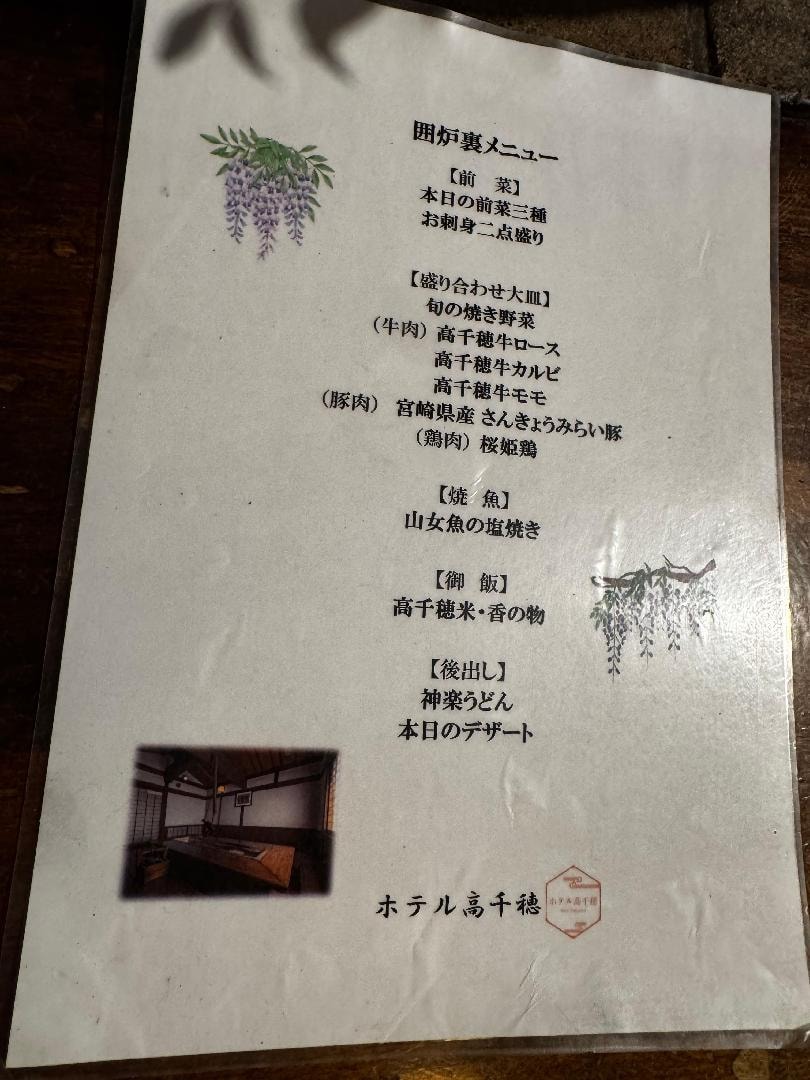 囲炉裏メニュー
【前　菜】
本日の前菜三種
お刺身二点盛り
【盛り合わせ大皿】
旬の焼き野菜
（牛肉）高千穂牛ロース
高千穂牛カルビ
高千穂牛モモ
（豚肉）　宮崎県産 さんきょうみらい豚
（鶏肉）桜姫鶏
【焼　魚】
山女魚の塩焼き
【御　飯】
高千穂米・香の物
【後出し】
神楽うどん
本日のデザート
ホテル高千穂
ホテル高千穂